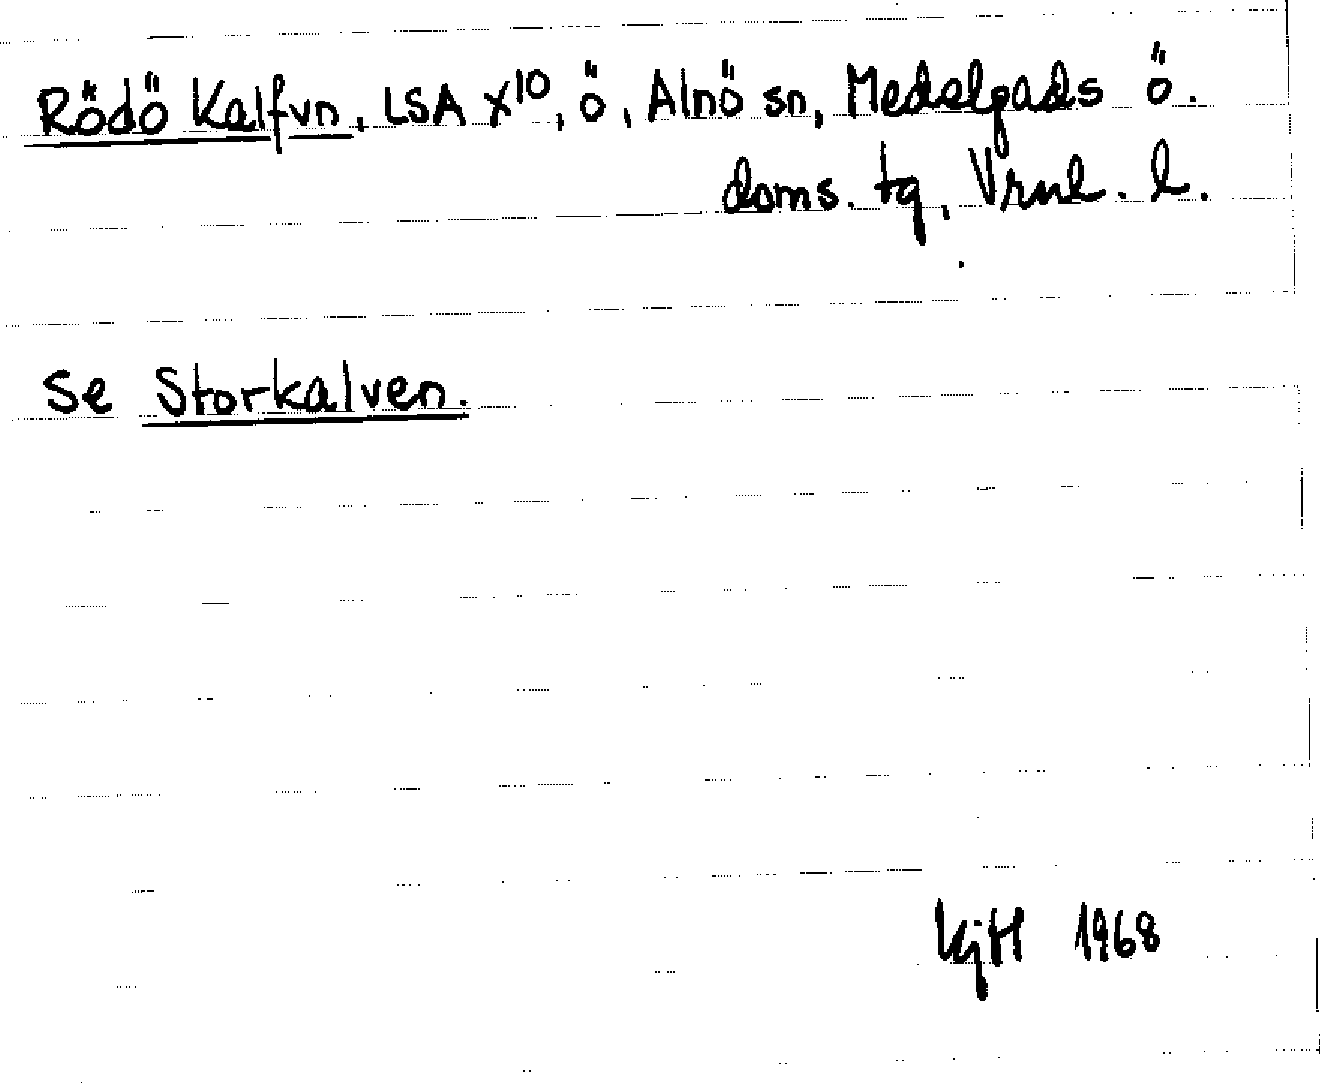 Rödö Kalfvn, LSA X10, ö, Alnö sn, Medelpads ö.
doms. tg, Vrnl. l.
Se Storkalven.
KjH 1968